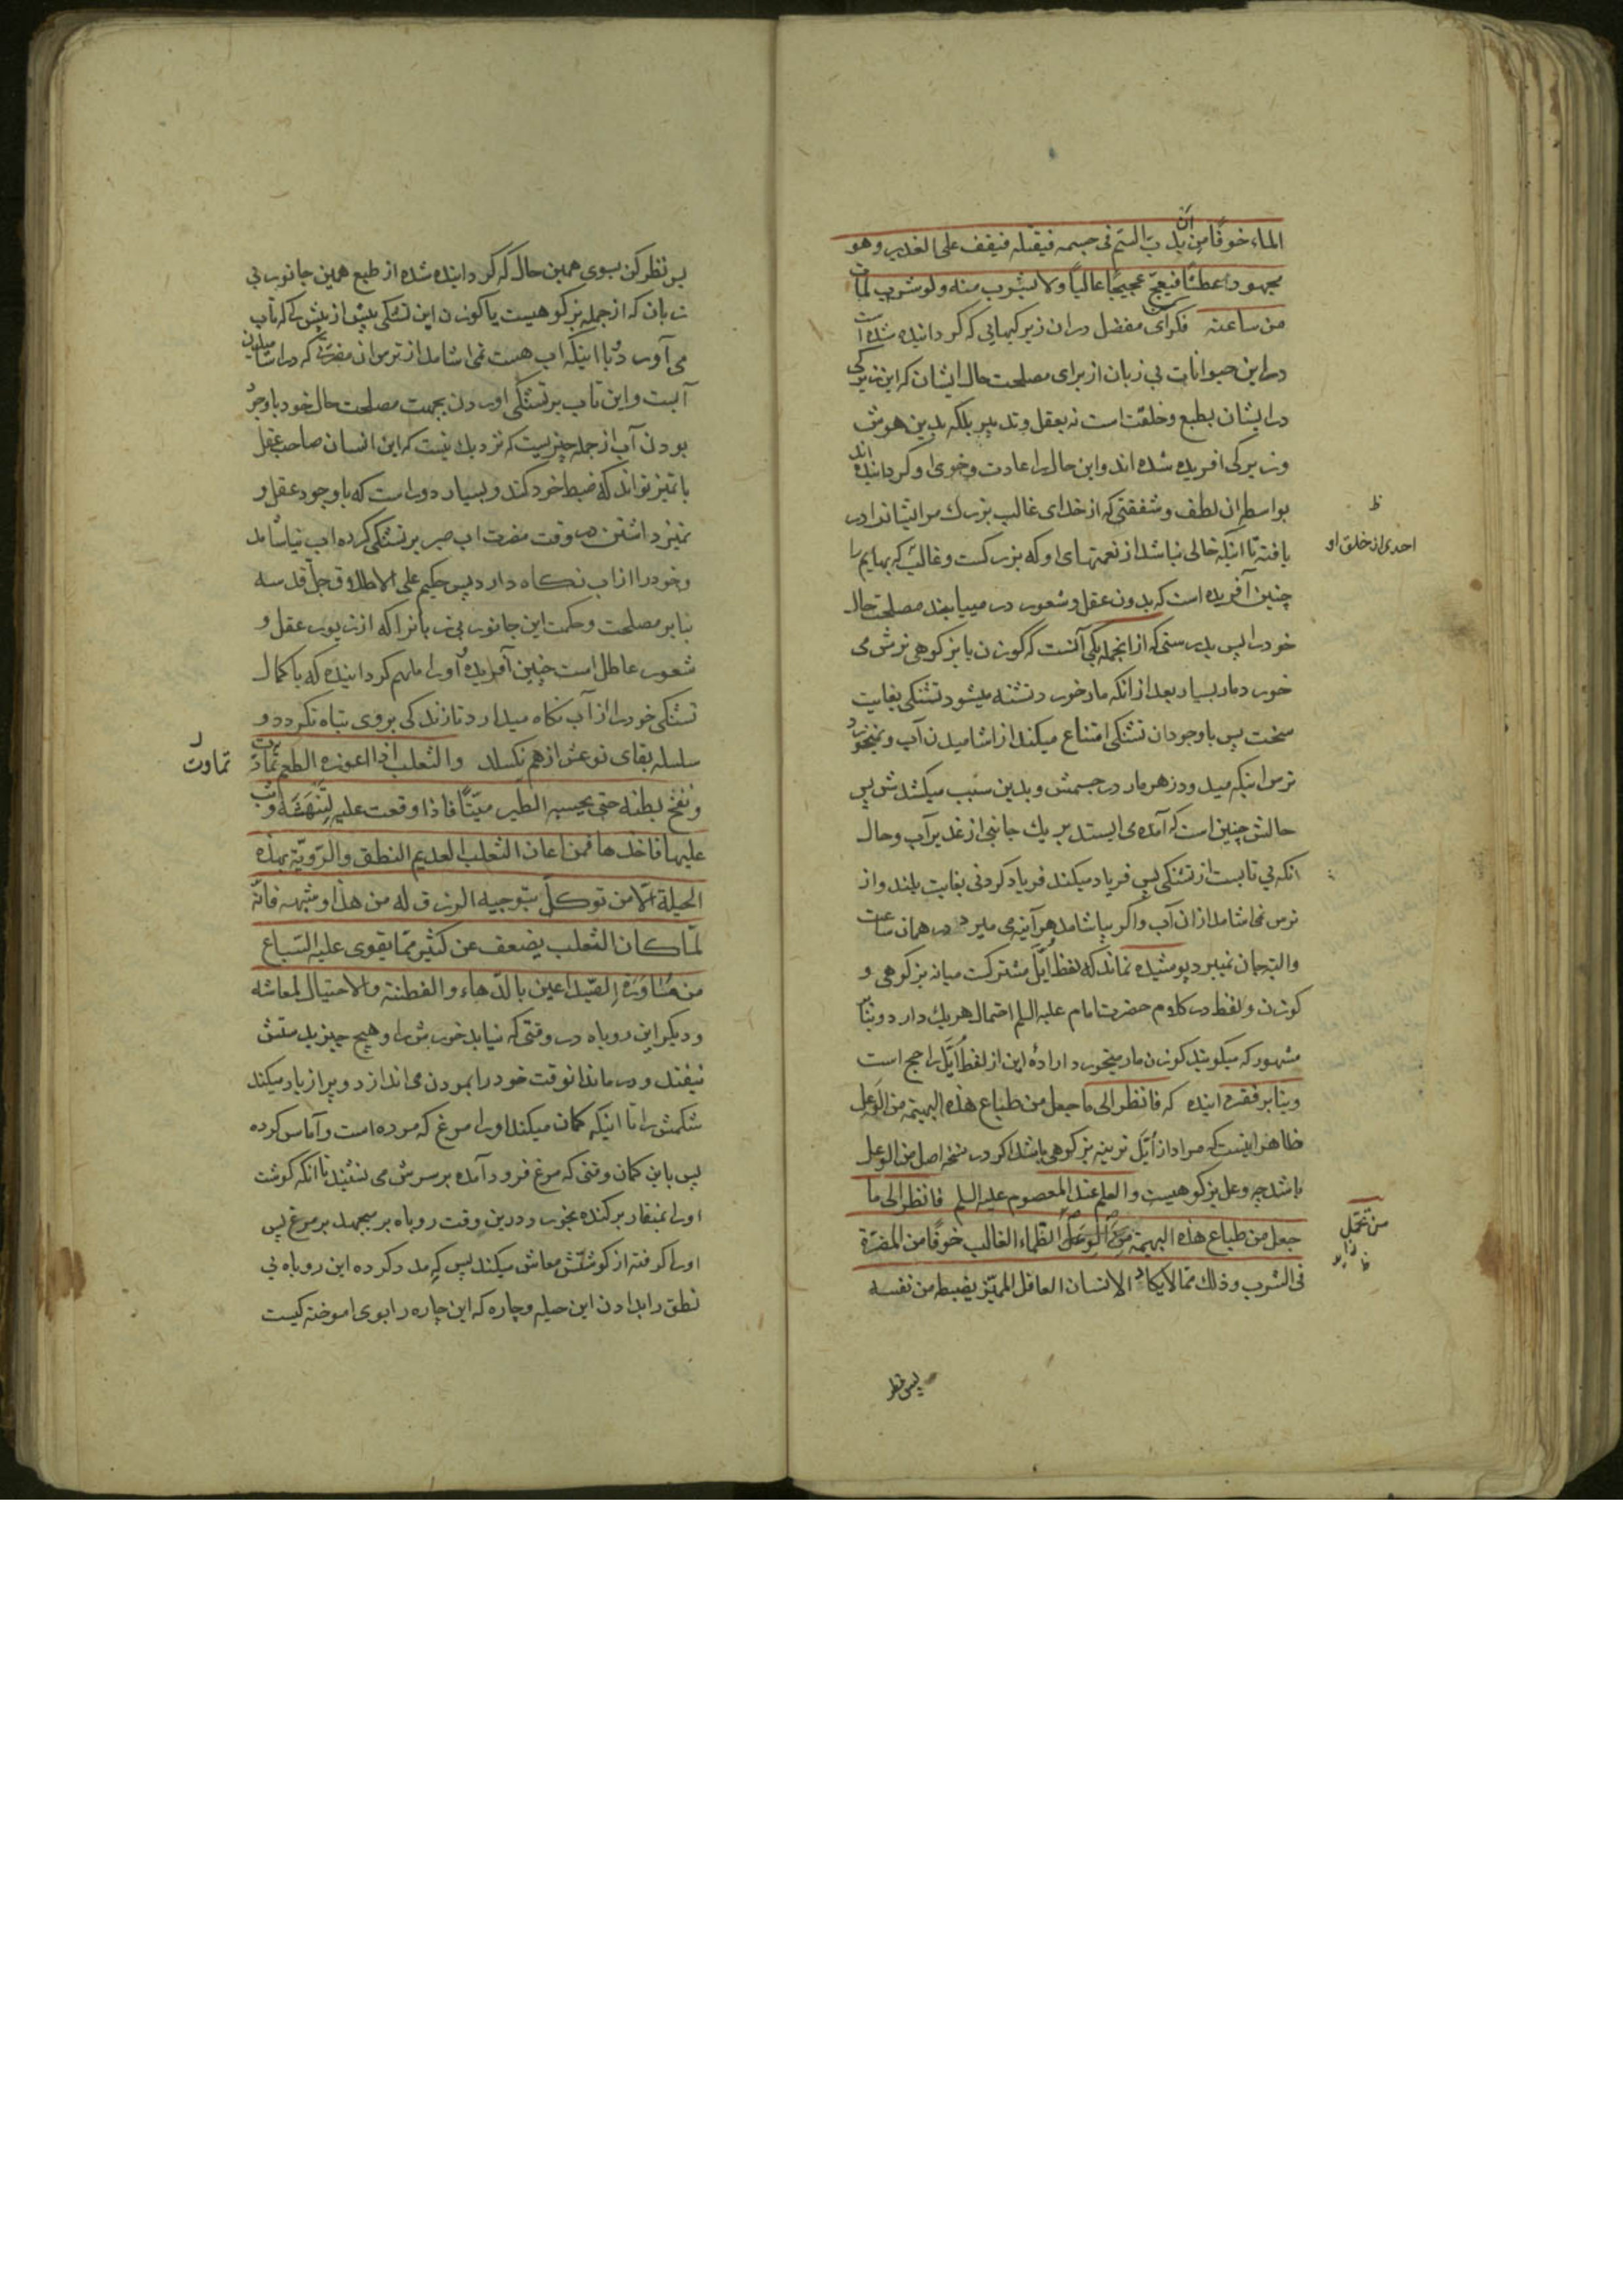 الماء خوفًا من ان یدبّ السّم فی جسمه فیقتله فیقف علی الغدیر و هو
مجهود عطشًا فیعجّ عجیجًا عالیًا ولا یشرب منه ولو شرب لمات
من ساعته فکر ای مفضل در ان زیرکیهایی که کردانیده شده است
در این حیوانات بی زبان از برای مصلحت حال ایشان که این زیرکی
در ایشان بطبع و خلقت است نه بعقل و تدبیر بلکه بدین هوش
و زیرکی افریده شده اند و این حال را عادت و خوی او کردانیده اند
بواسطه ان لطف و شفقتی که از خدای غالب بزرك مر ایشانرا در
یافته تا اینکه خالی نباشد از نعمتهای او که بزرکست و غالب که بهایم را
احدی از خلق او
ظ
چنین آفریده است که بدون عقل و شعور در مییابند مصلحت حال
خود را پس بدرستی که از انجمله یکی آنست که کوزن یا بز کوهی نرش می
خورد مار بسیار بعد از انکه مار خورد تشنه میشود تشنکی بغایت
سخت پس با وجود ان تشنکی امتناع میکند از اشامیدن آب و نمیخورد
ترس اینکه میدود زهر مار در جسمش و بدین سبب میکشدش پس
حالش چنین است که آمده می ایستد بر یك جانبی از غدیر آب و حال
انکه بی تابست از تشنکی پس فریاد میکند فریاد کردنی بغایت بلند و از
ترس نمی اشامد از ان آب و اکر بیاشامد هر آینه می میرد در همان ساعت
والبته جان نمیبرد پوشیده نماند که لفظ اُیَّل مشترکست میانه بز کوهی و
کوزن و لفظ در کلام حضرت امام علیه السلم احتمال هر یك دارد و بنابر
مشهور که میکویند کوزن مار میخورد ارادهٔ این از لفظ اُیَّل راجح است
و بنابر فقره اینده که فانظر الی ما جعل من طباع هذه البهیمة من الوعل
ظاهر اینست که مراد از اُیَّل نرینه بز کوهی باشد اکر در نسخه اصل من الوعل
باشد چه وعل بز کوهیست والعلم عند المعصوم علیه السلم فانظر الی ما
جعل من طباع هذه البهیمة من الوعل الظماء الغالب خوفًا من المضرّة
من تحمّل
فی الشرب و ذلك ممّا لا یکاد الانسان العاقل الممیّز یضبطه من نفسه
پس نظر
پس نظر کن بسوی همین حال که کردانیده شده از طبع همین جانور بی
زبان که از جمله بز کوهیست یا کوزن این تشنکی بیش از بیش را که تاب
می آورد و با اینکه اب هست نمی اشامد از ترس ان مضرتی که در اشامیدن
آبست و این تاب بر تشنکی اوردن بجهت مصلحت حال خود با وجود
بودن آب از جمله چیزیست که نزدیك نیست که این انسان صاحب عقل
با تمیز تواند که ضبط خود کند و بسیار دور است که با وجود عقل و
تمیز داشتن در وقت مضرت اب صبر بر تشنکی کرده اب نیاشامد
و خود را از اب نکاه دارد پس حکیم علی الاطلاق جلّ قدسه
بنابر مصلحت و حکمت این جانور بی زبانرا که از زیور عقل و
شعور عاطل است چنین آفریده و او را ملهم کردانیده که با کمال
تشنکی خود را از آب نکاه میدارد تا زندکی بر وی تباه نکردد و
سلسله بقای نوعش از هم نکسلد والثعلب اذا اعوزه الطعم تماوت
تماوت
و نفخ بطنه حتی یحسبه الطیر میّتًا فاذا وقعت علیه لتنهشه وثب
علیها فاخذها فمن اعان الثعلب العدیم النطق والرّویّة بهذه
الحیلة الّا من توکّل بتوجیه الرزق له من هذا و شبهه فانّه
لمّا کان الثعلب یضعف عن کثیر ممّا یقوی علیه السّباع
من مساورة الصّید اعین بالدّهاء والفطنة والاحتیال لمعاشه
و دیکر این روباه در وقتی که نیابد خورش را و هیچ چیز بدستش
نیفتد و درماند انوقت خود را بمردن می اندازد و پر از باد میکند
شکمش را تا اینکه کمان میکند او را مرغ که مرده است و آماس کرده
پس باین کمان وقتی که مرغ فرود آمده بر سرش می نشیند تا انکه کوشت
او را بمنقار بر کنده بخورد در ین وقت روباه بر میجهد بر مرغ پس
او را کرفته از کوشتش معاش میکند پس که مدد کرده این روباه بی
نطق را بدادن این حیله و چاره که این چاره را بوی اموخته کیست